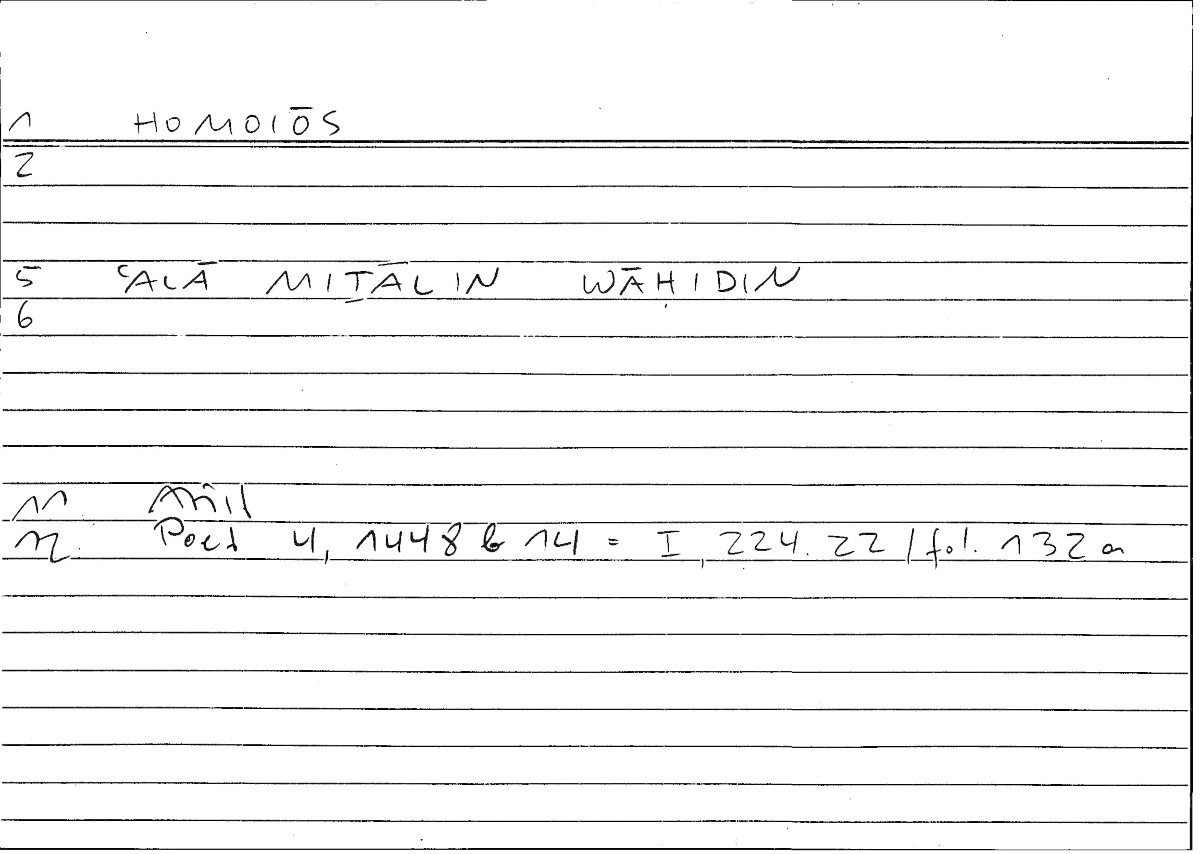 1 HOMOIŌS
2
5 ʿALĀ MIṮĀLIN WĀḤIDIN
6
11
12 Poet 4, 1448 b 14 = I, 224.22 / fol. 132 a